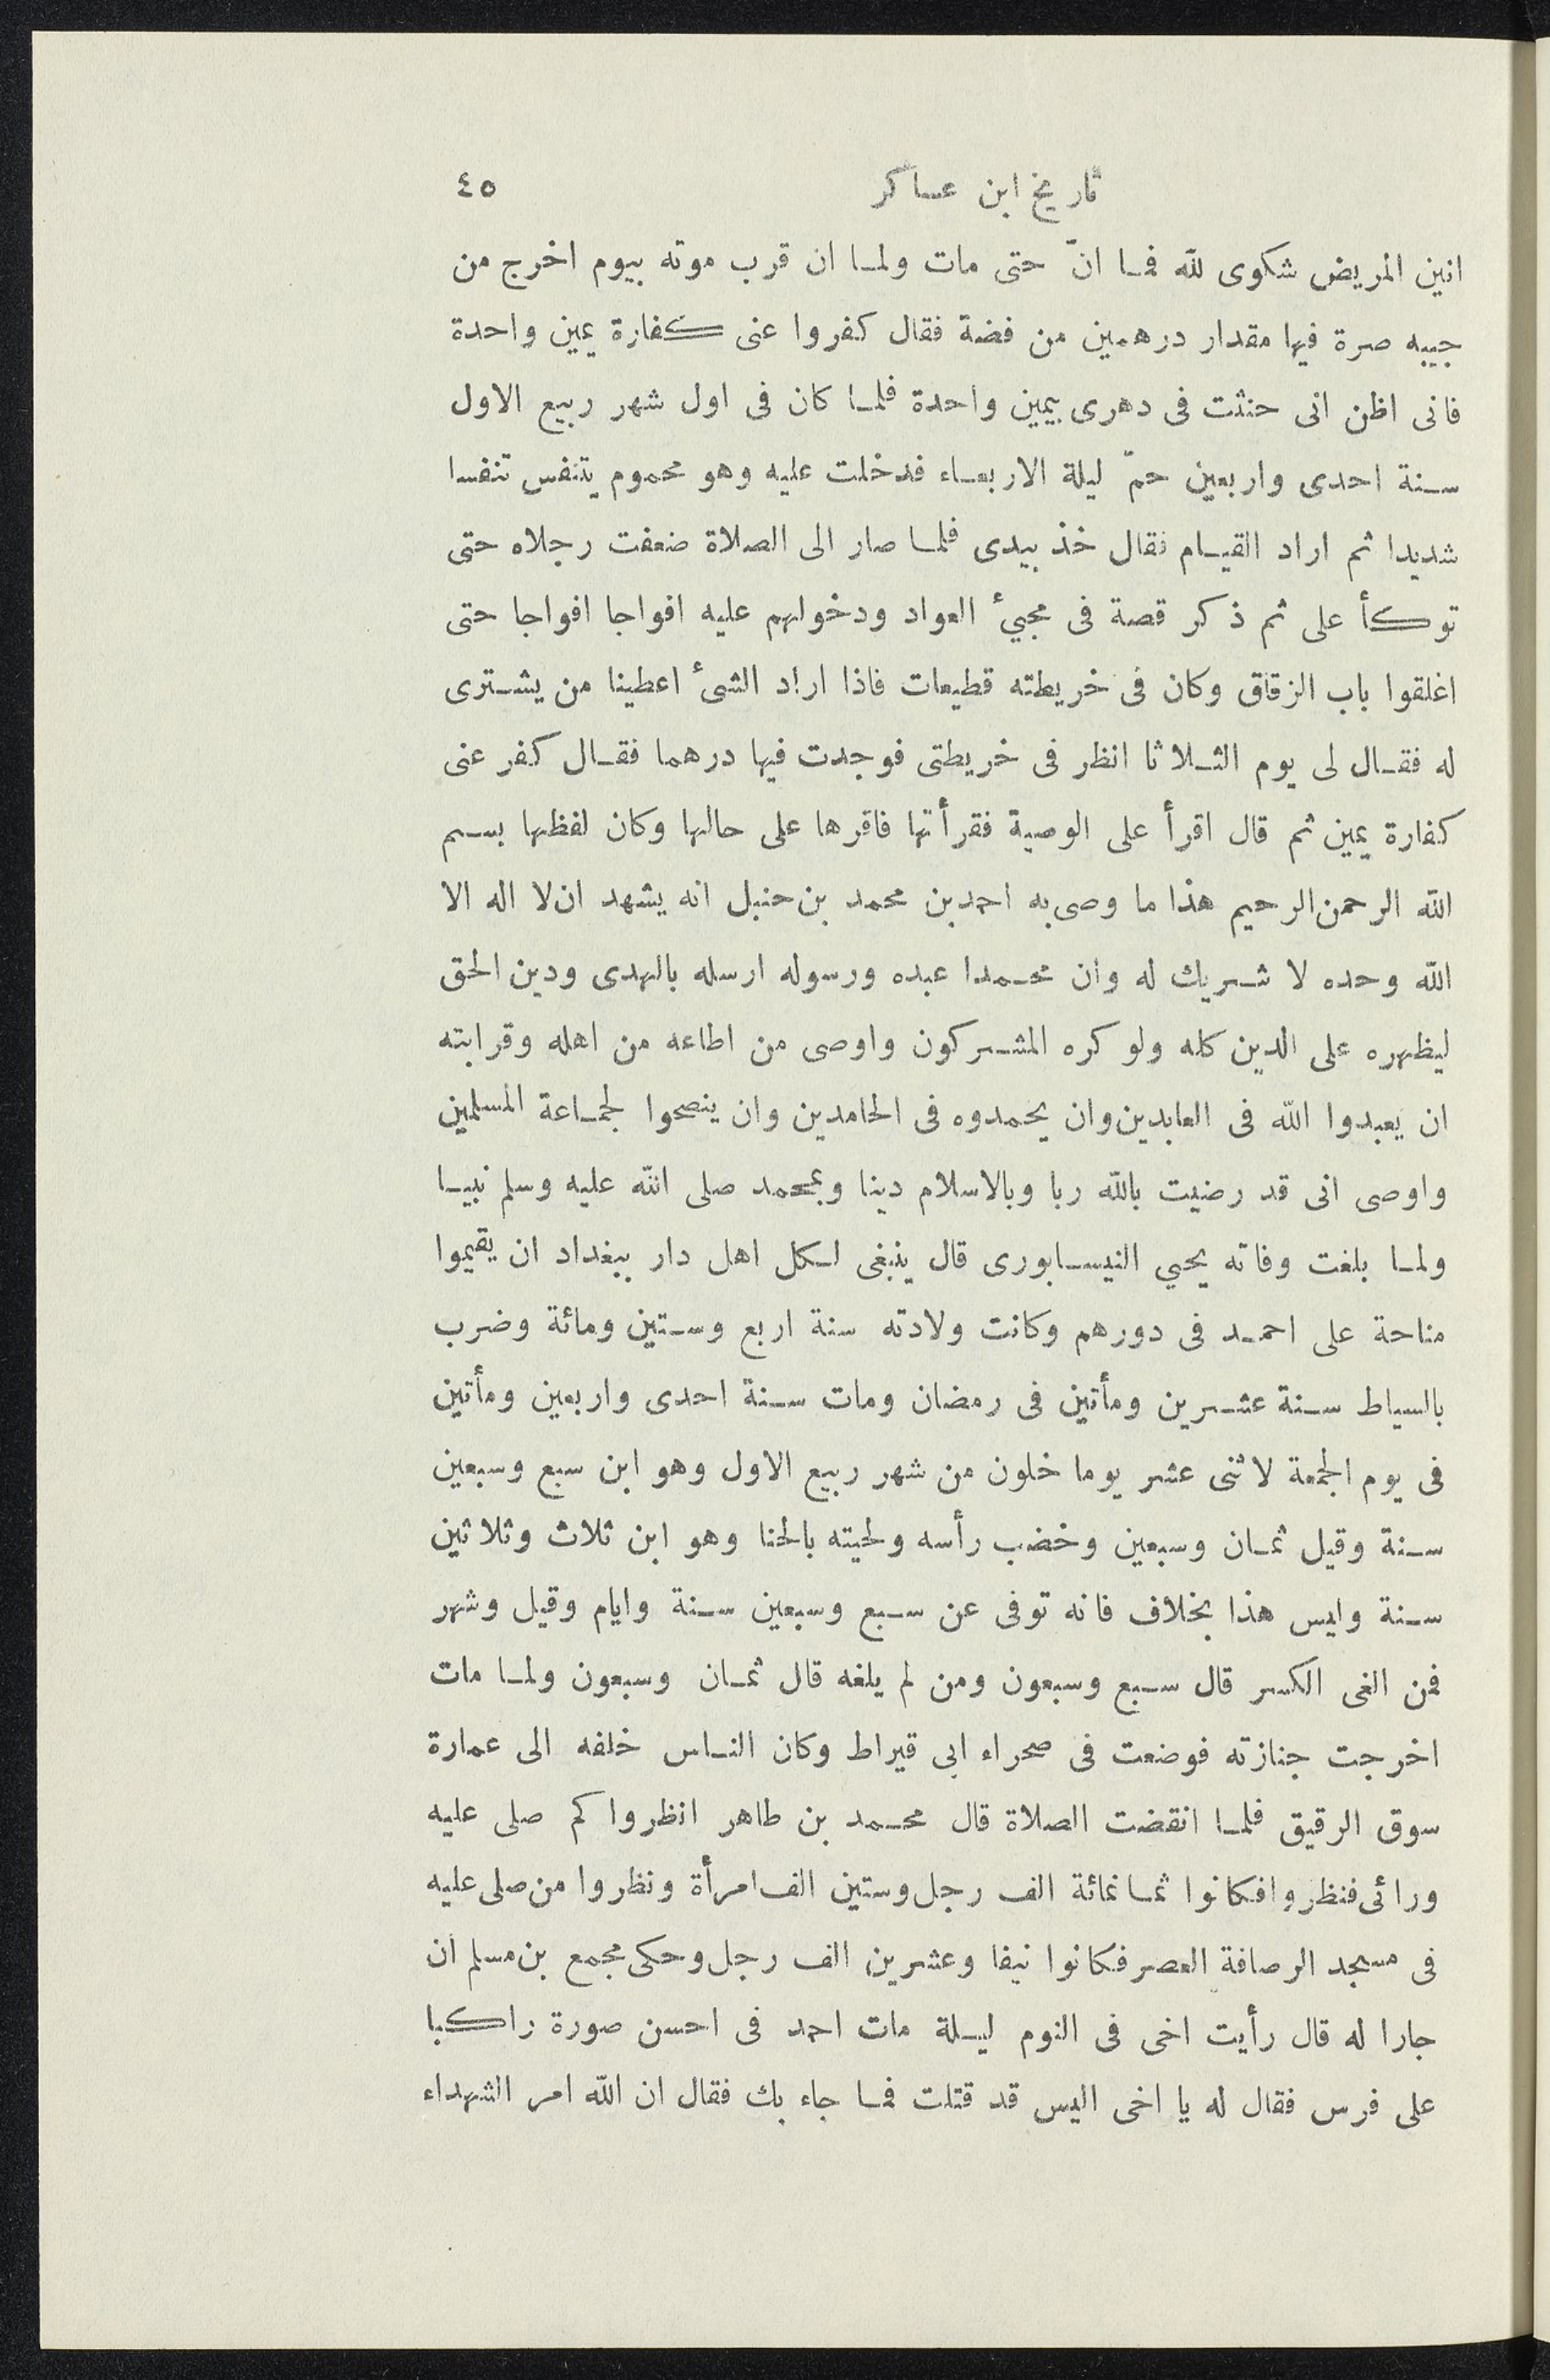 تاريخ ابن عساكر ٤٥
انين المريض شكوى لله فما انّ حتى مات ولما ان قرب موته بيوم اخرج من
جيبه صرة فيها مقدار درهمين من فضة فقال كفروا عنى كفارة يمين واحدة
فانى اظن انى حنثت فى دهرى بيمين واحدة فلما كان فى اول شهر ربيع الاول
سنة احدى واربعين حمّ ليلة الاربعاء فدخلت عليه وهو محموم يتنفس تنفسا
شديدا ثم اراد القيام فقال خذ بيدى فلما صار الى الصلاة ضعفت رجلاه حتى
توكأ على ثم ذكر قصة فى مجيئ العواد ودخولهم عليه افواجا افواجا حتى
اغلقوا باب الزقاق وكان فى خريطته قطيعات فاذا اراد الشئ اعطينا من يشترى
له فقال لى يوم الثلاثا انظر فى خريطتى فوجدت فيها درهما فقال كفر عنى
كفارة يمين ثم قال اقرأ على الوصية فقرأتها فاقرها على حالها وكان لفظها بسم
الله الرحمن الرحيم هذا ما وصى به احمد بن محمد بن حنبل انه يشهد ان لا اله الا
الله وحده لا شريك له وان محمدا عبده ورسوله ارسله بالهدى ودين الحق
ليظهره على الدين كله ولو كره المشركون واوصى من اطاعه من اهله وقرابته
ان يعبدوا الله فى العابدين وان يحمدوه فى الحامدين وان ينصحوا لجماعة المسلمين
واوصى انى قد رضيت بالله ربا وبالاسلام دينا وبمحمد صلى الله عليه وسلم نبيا
ولما بلغت وفاته يحيي النيسابورى قال ينبغى لكل اهل دار ببغداد ان يقيموا
مناحة على احمد فى دورهم وكانت ولادته سنة اربع وستين ومائة وضرب
بالسياط سنة عشرين ومأتين فى رمضان ومات سنة احدى واربعين ومأتين
فى يوم الجمعة لاثنى عشر يوما خلون من شهر ربيع الاول وهو ابن سبع وسبعين
سنة وقيل ثمان وسبعين وخضب رأسه ولحيته بالحنا وهو ابن ثلاث وثلاثين
سنة وليس هذا بخلاف فانه توفى عن سبع وسبعين سنة وايام وقيل وشهر
فمن الغى الكسر قال سبع وسبعون ومن لم يلغه قال ثمان وسبعون ولما مات
اخرجت جنازته فوضعت فى صحراء ابى قيراط وكان الناس خلفه الى عمارة
سوق الرقيق فلما انقضت الصلاة قال محمد بن طاهر انظروا كم صلى عليه
ورائى فنظروا فكانوا ثمانمائة الف رجل وستين الف امرأة ونظروا من صلى عليه
فى مسجد الرصافة العصر فكانوا نيفا وعشرين الف رجل وحكى مجمع بن مسلم ان
جارا له قال رأيت اخى فى النوم ليلة مات احمد فى احسن صورة راكبا
على فرس فقال له يا اخى اليس قد قتلت فما جاء بك فقال ان الله امر الشهداء